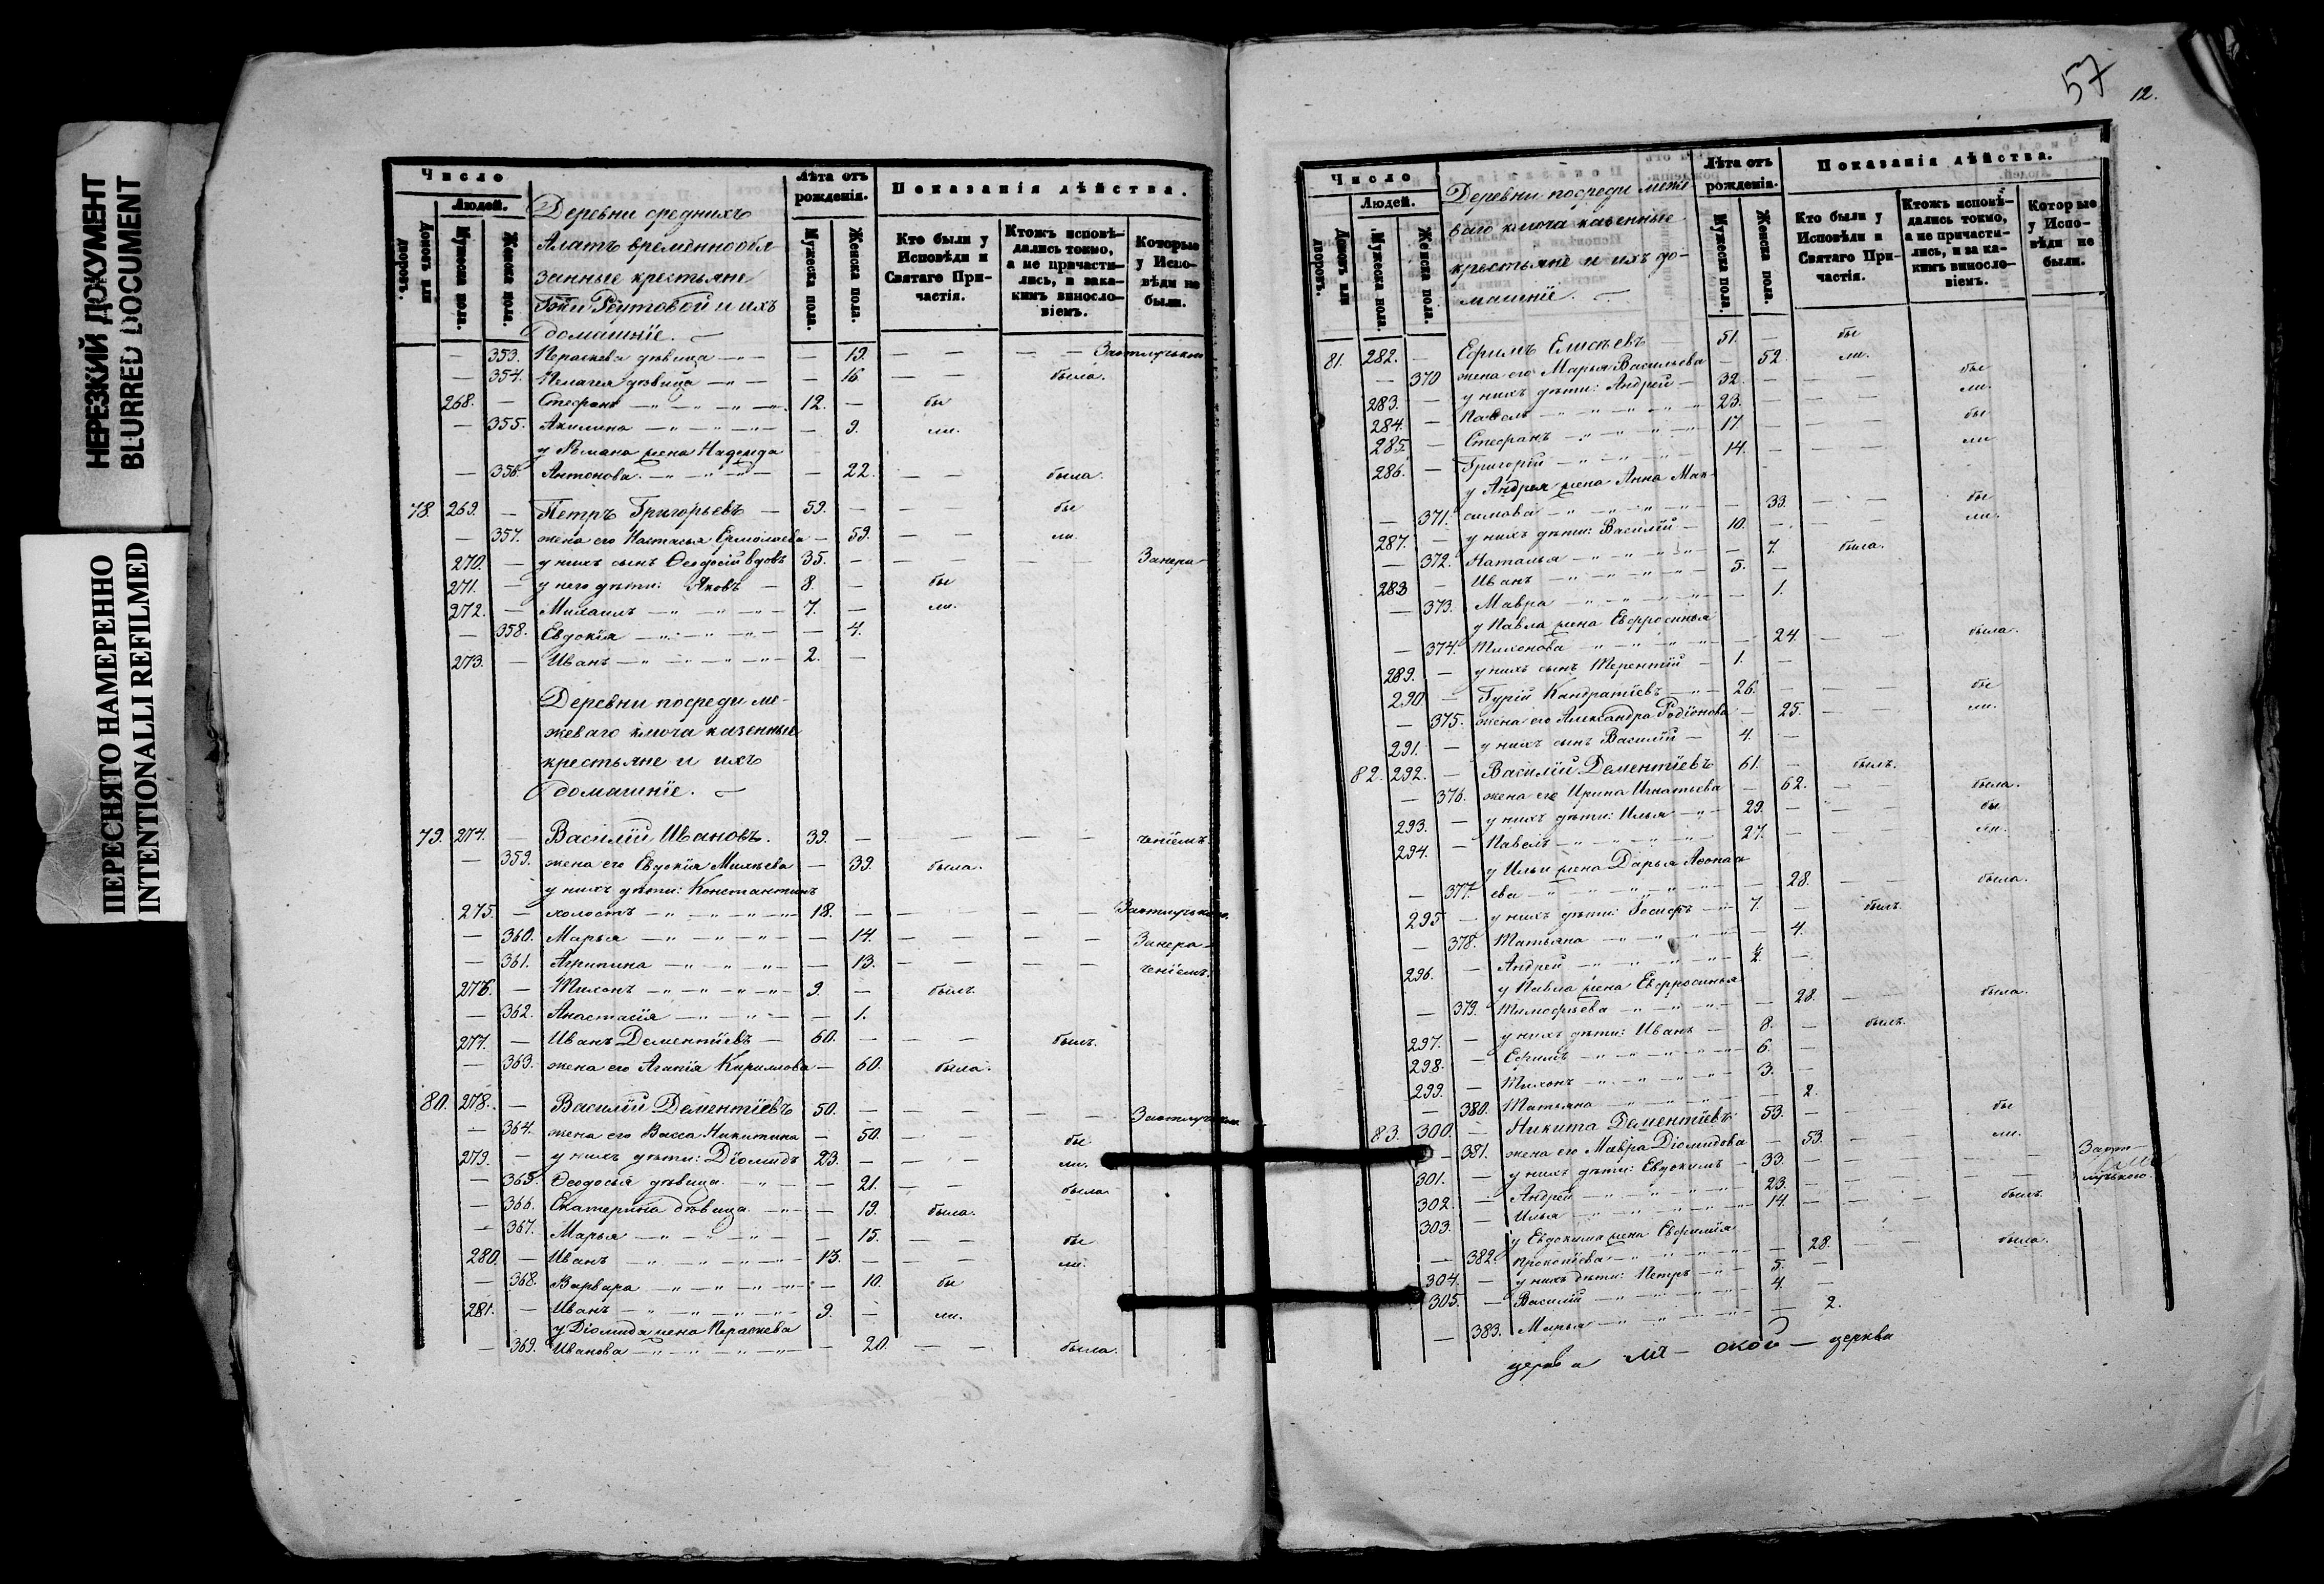 НЕРЕЗКИЙ ДОКУМЕНТ
BLURRED DOCUMENT
ПЕРЕСНЯТО НАМЕРЕННО
INTENTIONALLI REFILMED
Число
Людей.
Домовъ или дворовъ.
Мужеска пола.
Женска пола.
Деревни среднихъ
Алатъ временнообя
занные крестьяне
Гжи Реутовой и ихъ
домашніе.
Лѣта отъ рожденія.
Мужеска пола.
Женска пола.
Показанія дѣйства.
Кто были у Исповѣди и Святаго Причастія.
Ктожъ исповѣдались токмо, а не причастились, и за какимъ винословіемъ.
Которые у Исповѣди не были.
— 353. Параскева дѣвица — — 19. — — — — Заотлучкою
— 354. Пелагея дѣвица — — 16 — — была.
268. — Стефанъ — 12. — бы
— 355. Акилина — — 9. ли.
у Романа жена Надежда
— 356. Антонова. — — 22. — — была.
78. 269. — Петръ Григорьевъ — 59. — — бы
— 357. жена его Настасья Ермолаева — 59. — — ли.
270. — у нихъ сынъ Ѳеодосій вдовъ 35. — — — — Занера-
271. — у него дѣти: Яковъ — 8. — бы
272. — Михаилъ — 7. — ли.
— 358. Евдокія — — 4.
273. — Иванъ — 2. —
Деревни посреди ме-
жеваго ключа казенные
крестьяне и ихъ
домашніе.
79. 274. — Василій Ивановъ. 39. — — — — ченіемъ.
— 359. жена его Евдокія Михѣева — 39. была.
у нихъ дѣти: Константинъ
275. — холостъ — 18. — — — — Заотлучкою.
— 360. Марья — — 14. — — — — Занера-
— 361. Агрипина — — 13. — — — — ченіемъ.
276. — Тихонъ — 9. — былъ.
— 362. Анастасія — — 1.
277. — Иванъ Дементіевъ — 60. — — — былъ.
— 363. жена его Агапія Кирилова — 60. была.
80. 278. — Василій Дементіевъ 50. — — — — Заотлучкою.
— 364. жена его Васса Никитина — 50. — — бы
279. — у нихъ дѣти: Діомидъ 23. — — — ли.
— 365. Ѳеодосья дѣвица. — — 21. — — была.
— 366. Екатерина дѣвица — — 19. была.
— 367. Марья — — 15. — — бы
280. — Иванъ — 13. — — — ли.
— 368. Варвара — — 10. бы
281. — Иванъ — 9. — ли.
у Діомида жена Параскева
— 369. Иванова — — 20. — — была.
57
12.
Число
Людей.
Домовъ или дворовъ.
Мужеска пола.
Женска пола.
Деревни посреди меже
ваго ключа казенные
крестьяне и ихъ до-
машніе.
Лѣта отъ рожденія.
Мужеска пола.
Женска пола.
Показанія дѣйства.
Кто были у Исповѣди и Святаго Причастія.
Ктожъ исповѣдались токмо, а не причастились, и за какимъ винословіемъ.
Которые у Исповѣди не были.
81. 282. — Ефимъ Елисѣевъ 51. — бы
— 370 жена его Марья Васильева — 52. ли.
283. — у нихъ дѣти: Андрей — 32. — — — бы
284. — Павелъ — 23. — — — ли.
285. — Стефанъ — 17. — — — бы
286. — Григорій — 14. — — — ли
у Андрея жена Анна Мак-
— 371. симова — — 33. — — бы
287. — у нихъ дѣти: Василій — 10. — — — ли.
— 372. Наталья — — 7. была.
288 — Иванъ — 5. —
— 373. Мавра — — 1.
у Павла жена Евфросинья
— 374. Тихонова — — 24. — — была.
289. — у нихъ сынъ Терентій — 1. —
290 — Гурій Кандратіевъ — 26. — — — бы
— 375. жена его Александра Родіонова — 25. — — ли.
291. — у нихъ сынъ Василій — 4. —
82. 292. — Василій Дементіевъ 61. — былъ.
— 376. жена его Ирина Игнатьева — 62. — — была.
293. — у нихъ дѣти: Илья — 29. — — — бы
294. — Павелъ — 27. — — — ли.
у Ильи жена Дарья Аѳонась
— 377 ева — — 28. — — была.
295 — у нихъ дѣти: Іосифъ — 7. — былъ.
— 378. Татьяна — — 4.
296. — Андрей — 2. —
у Павла жена Евфросинья
— 379. Тимофѣева — — 28. — — была.
297. — у нихъ дѣти: Иванъ — 8. — былъ.
298. — Ефимъ — 6. —
299. — Тихонъ — 3. —
— 380. Татьяна — — 2.
83. 300. — Никита Дементіевъ 53. — — — бы
— 381. жена его Мавра Діомидова — 53. — — ли.
301. — у нихъ дѣти: Евдокимъ — 33. — — — — Заот-
302. — Андрей — 23. — — — — лучкою.
303. — Илья — 14. — — — былъ.
у Евдокима жена Евфимія
— 382. Прокопіева — — 28. — — была.
304. — у нихъ дѣти: Петръ — 5. —
305. — Василій — 4. —
— 383. Марья — — 2.
церкви